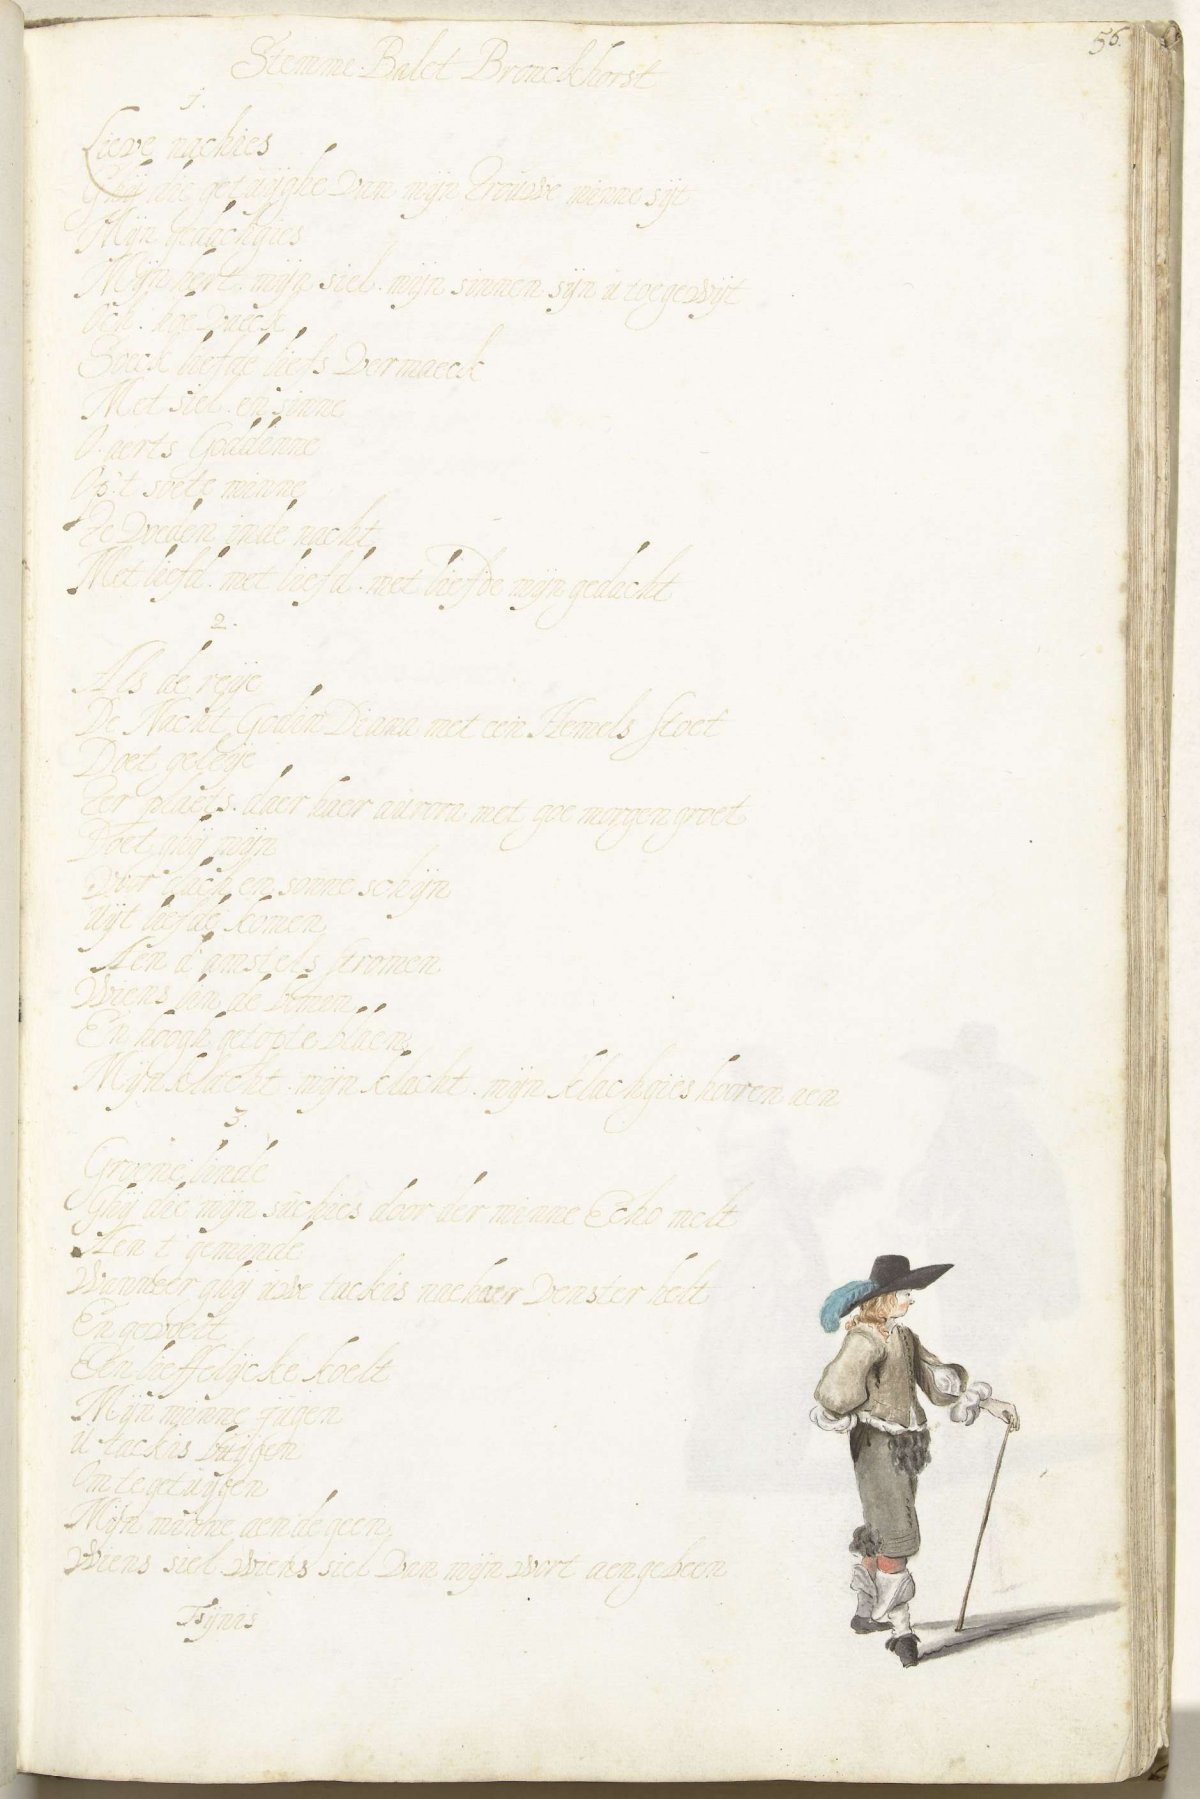 56.
Stemme. Balet Bronckhorst
1.
Lieve nachies
Ghij die getuijghe van mijn trouwe minne sijt
Mijn gedachgies
Mijn hert. mijn siel. mijn sinnen sijn u toegewijt
Och. hoe vaeck
Soeck liefde liefs vermaeck
Met siel en sinne
O. aerts Goddinne
Op't soete minne
Te voeden inde nacht
Met liefd. met liefd. met liefde mijn gedacht
2.
Als de reije
De Nacht Godin Diana met een Hemels stoet
Doet geleije
Ter plaets. daer haer aurora met goe morgen groet
Doet ghij mijn
Voor dach en sonne schijn
Uijt liefde komen
Aen d'amstels stromen
Wiens lin de bomen
En hoogh getopte blaen
Mijn klacht. mijn klacht. mijn klachgies hooren aen
3.
Groene linde
Ghij die mijn suchies door der minne Echo melt
Aen t geminde
Wanneer ghij uwe tackis nae haer venster helt
En gevoelt
Een lieffelijcke koelt
Mijn minne tuigen
U tackis buijgen
Om te getuijgen
Mijn minne aen de geen
Wiens siel wiens siel van mijn wort aengebeen
Fijnis